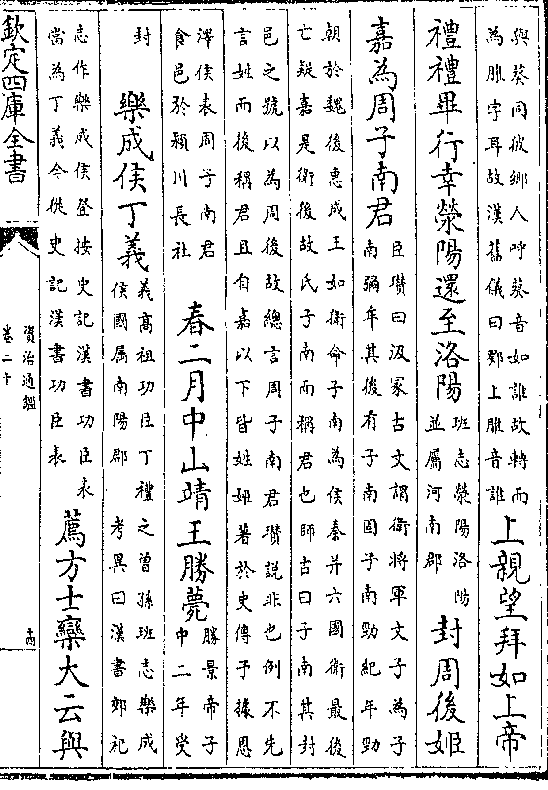 與葵同彼鄉人呼葵音如誰故轉而
為脽字耳故漢舊儀曰鄈上脽音誰
上親望拜如上帝
禮禮畢行幸滎陽還至洛陽
班志滎陽洛陽
並屬河南郡
封周後姬
嘉為周子南君
臣瓚曰汲冢古文謂衛將軍文子為子
南彌牟其後有子南固子南勁紀年勁
朝於魏後惠成王如衛命子南為侯秦并六國衛最後
亡疑嘉是衛後故氏子南而稱君也師古曰子南其封
邑之號以為周後故總言周子南君瓚說非也例不先
言姓而後稱君且自嘉以下皆姓姬著於史傳予據恩
澤侯表周子南君
食邑於潁川長社
春二月中山靖王勝薨
勝景帝子
中二年受
封
樂成侯丁義
義高祖功臣丁禮之曾孫班志樂成
侯國屬南陽郡 考異曰漢書郊祀
志作樂成侯登按史記漢書功臣表
當為丁義今從史記漢書功臣表
薦方士欒大云與
欽定四庫全書
資治通鑑
卷二十